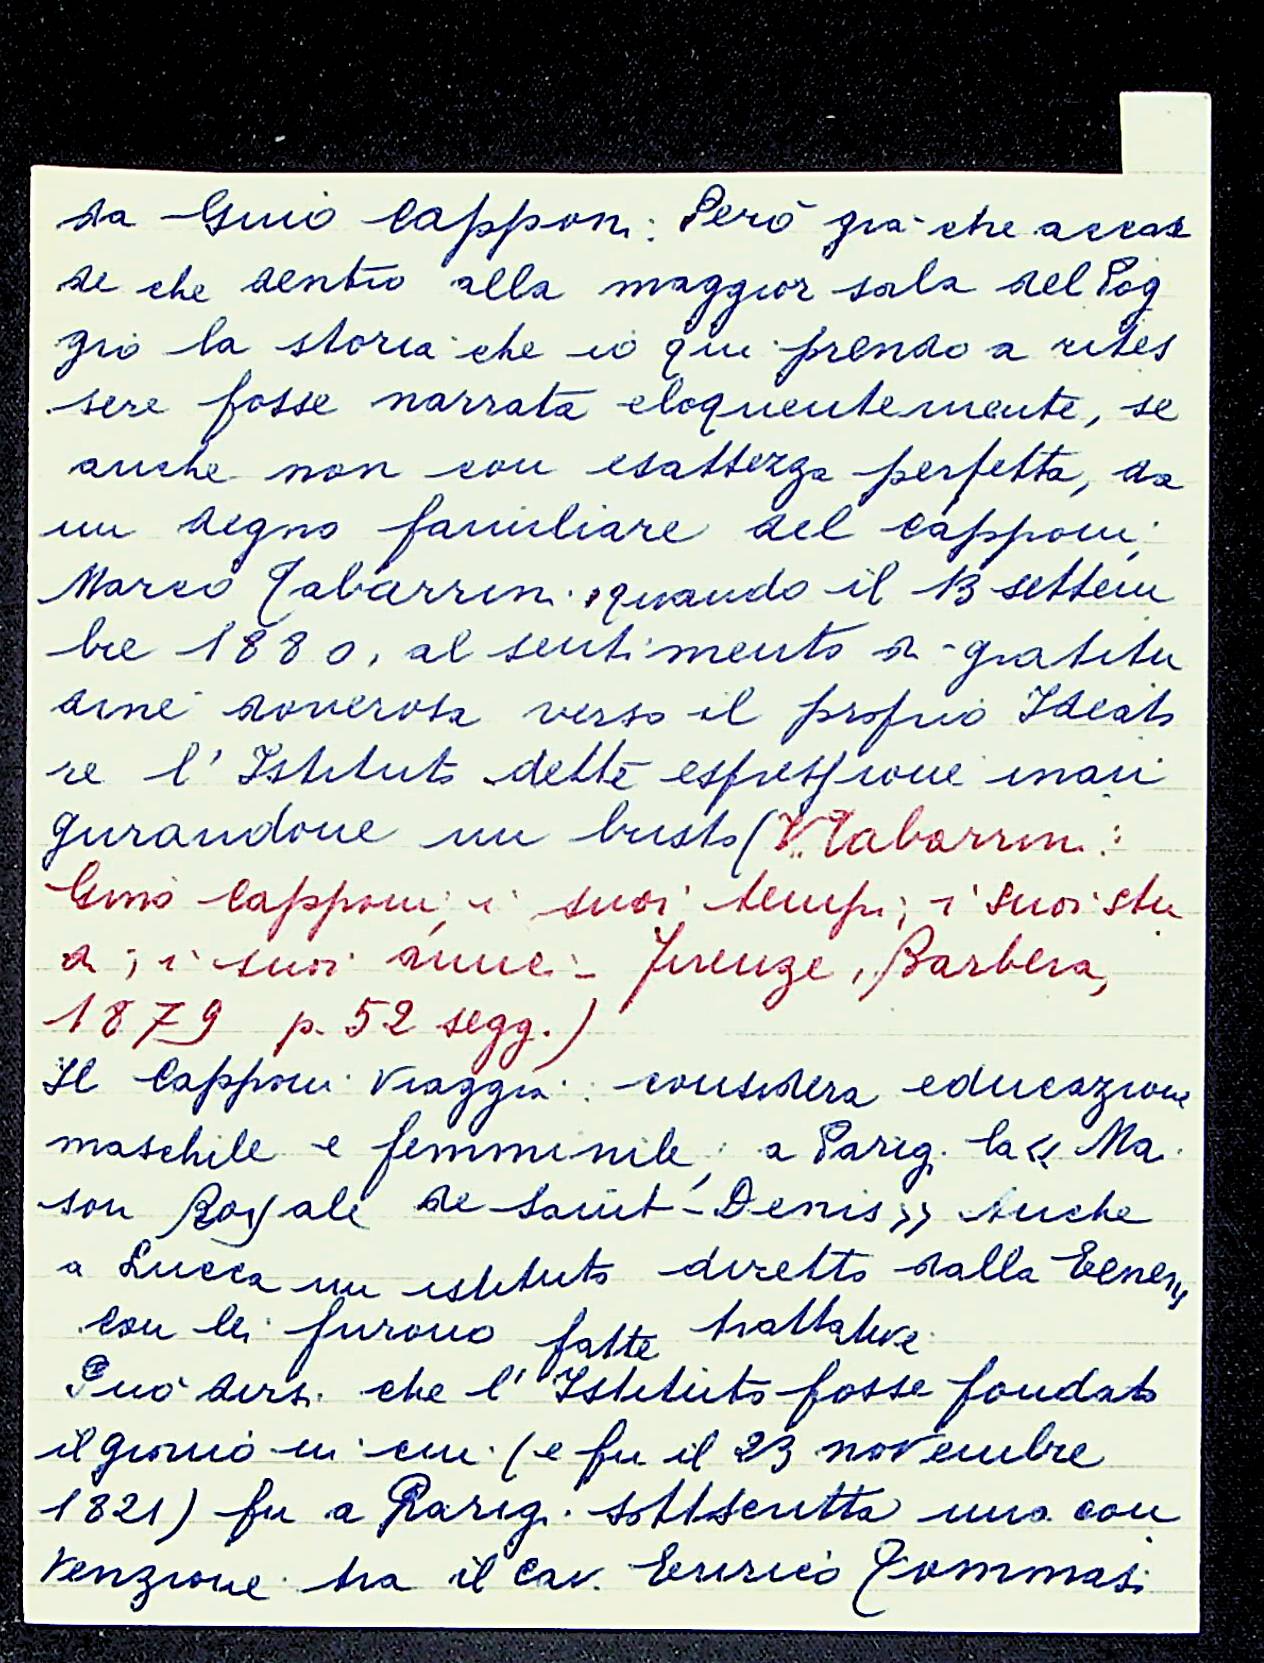 da Gino Capponi. Però già che accad
de che dentro alla maggior sala del Pog
gio la storia che io qui prendo a rites
sere fosse narrata eloquentemente, se
anche non con esattezza perfetta, da
un degno familiare del Capponi,
Marco Tabarrini, quando il 13 settem
bre 1880, al sentimento di gratitu
dine doverosa verso il proprio Ideato
re l'Istituto dette espressione inau
gurandone un busto (V. Tabarrini:
Gino Capponi, i suoi tempi, i suoi stu
di, i suoi amici - Firenze, Barbera,
1879 p. 52 segg.)
Il Capponi viaggia: considera educazione
maschile e femminile, a Parigi la « Mai
son Royale de Saint-Denis » Anche
a Lucca un istituto diretto dalla
con lei furono fatte trattative.
Può dirsi che l'Istituto fosse fondato
il giorno in cui (e fu il 23 novembre
1821) fu a Parigi sottoscritta una con
venzione tra il Cav. Enrico Tommasi